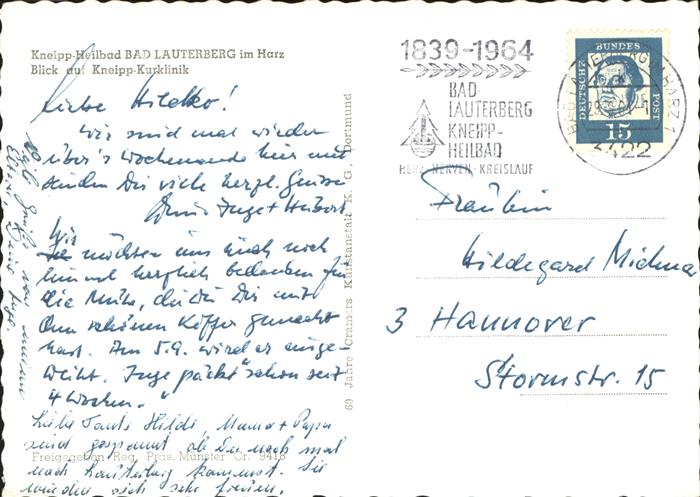 Kneipp-Heilbad BAD LAUTERBERG im Harz
Blick auf Kneipp-Kurklinik
Liebe Hildeko!
Wir sind mal wieder
über's Wochenende hier und
senden Dir viele herzl. Grüsse
Deine Inge + Hubert
Wir
möchten uns auch noch
einmal herzlich bedanken für
die Mühe, die du Dir mit
dem schönen Koffer gemacht
hast. Am 5.9. wird er einge-
weiht. Inge „packt" schon seit
4 Wochen.
Liebe Tante Hilde, Mama + Papa
sind gespannt ob Du noch mal
nach Lauterberg kommst. Sie
würden sich sehr freuen.
Freigegeben Reg. Präs. Münster Cr. 9418
60 Jahre Cramers Kunstanstalt K. G., Dortmund
1839-1964
BAD
LAUTERBERG
KNEIPP-
HEILBAD
HERZ · NERVEN · KREISLAUF
DEUTSCHE BUNDES POST
15
BAD LAUTERBERG (HARZ) 1
3422
Fräulein
Hildegard
3 Hannover
Stormstr. 15